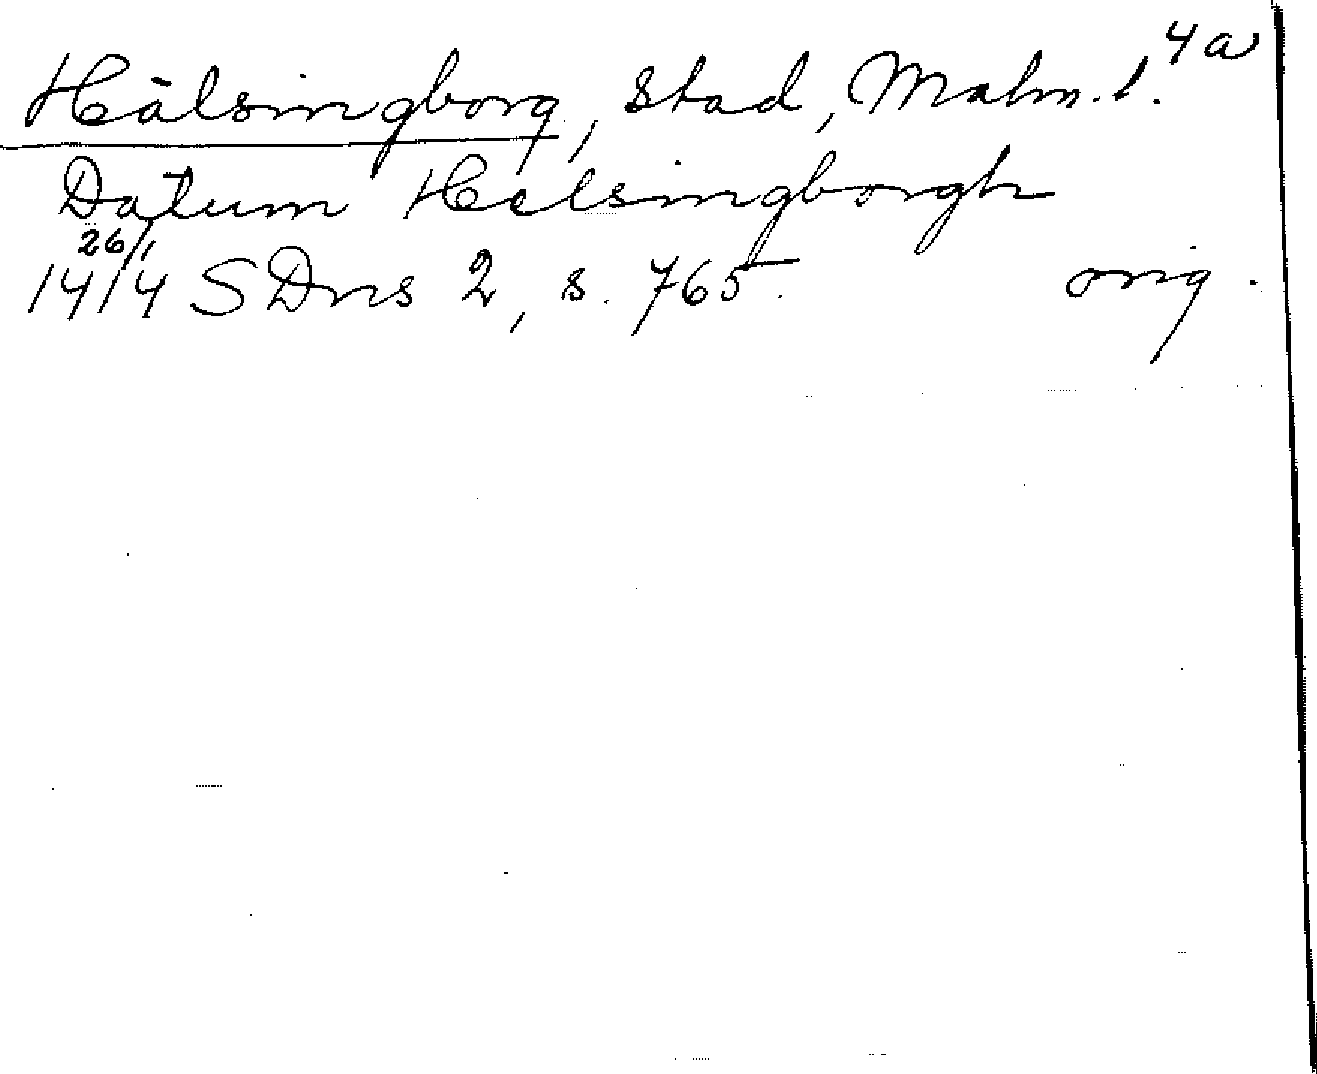 4a
Hälsingborg, stad, Malm. l.
Datum Helsingborgh
26/1
1414 SDns 2, s. 765. orig.